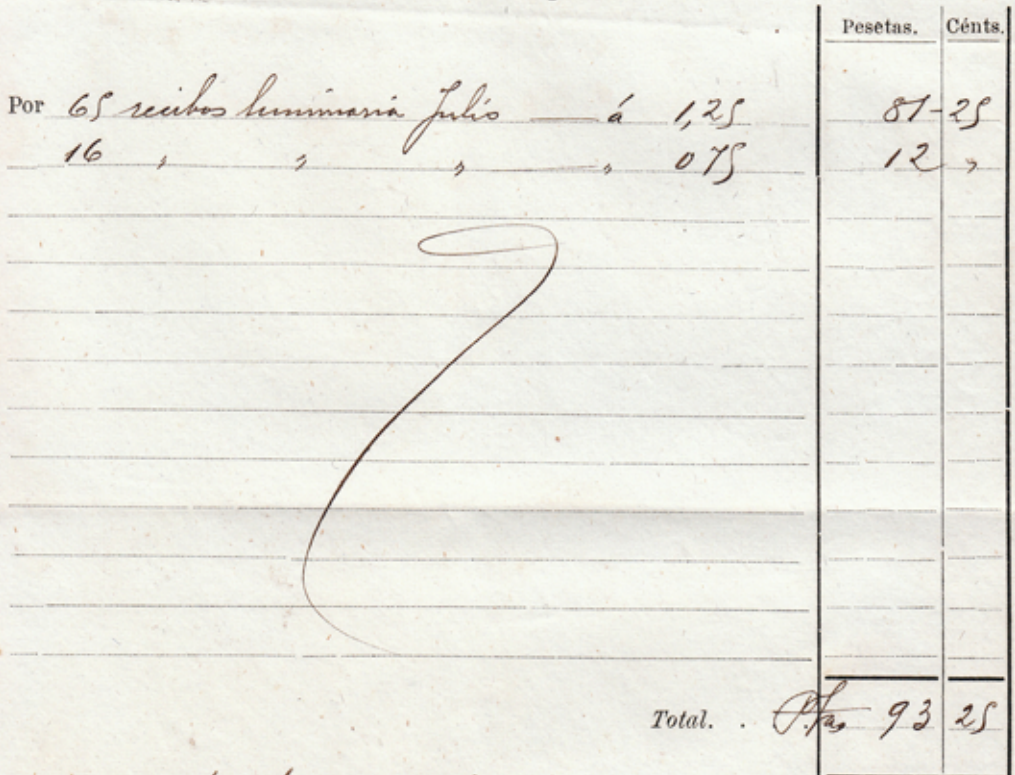 Pesetas. Cénts.
Por 65 recibos luminaria Julio — á 1,25 81-25
16 " " " — " 075 12 "
Total. . Ptas 93 25